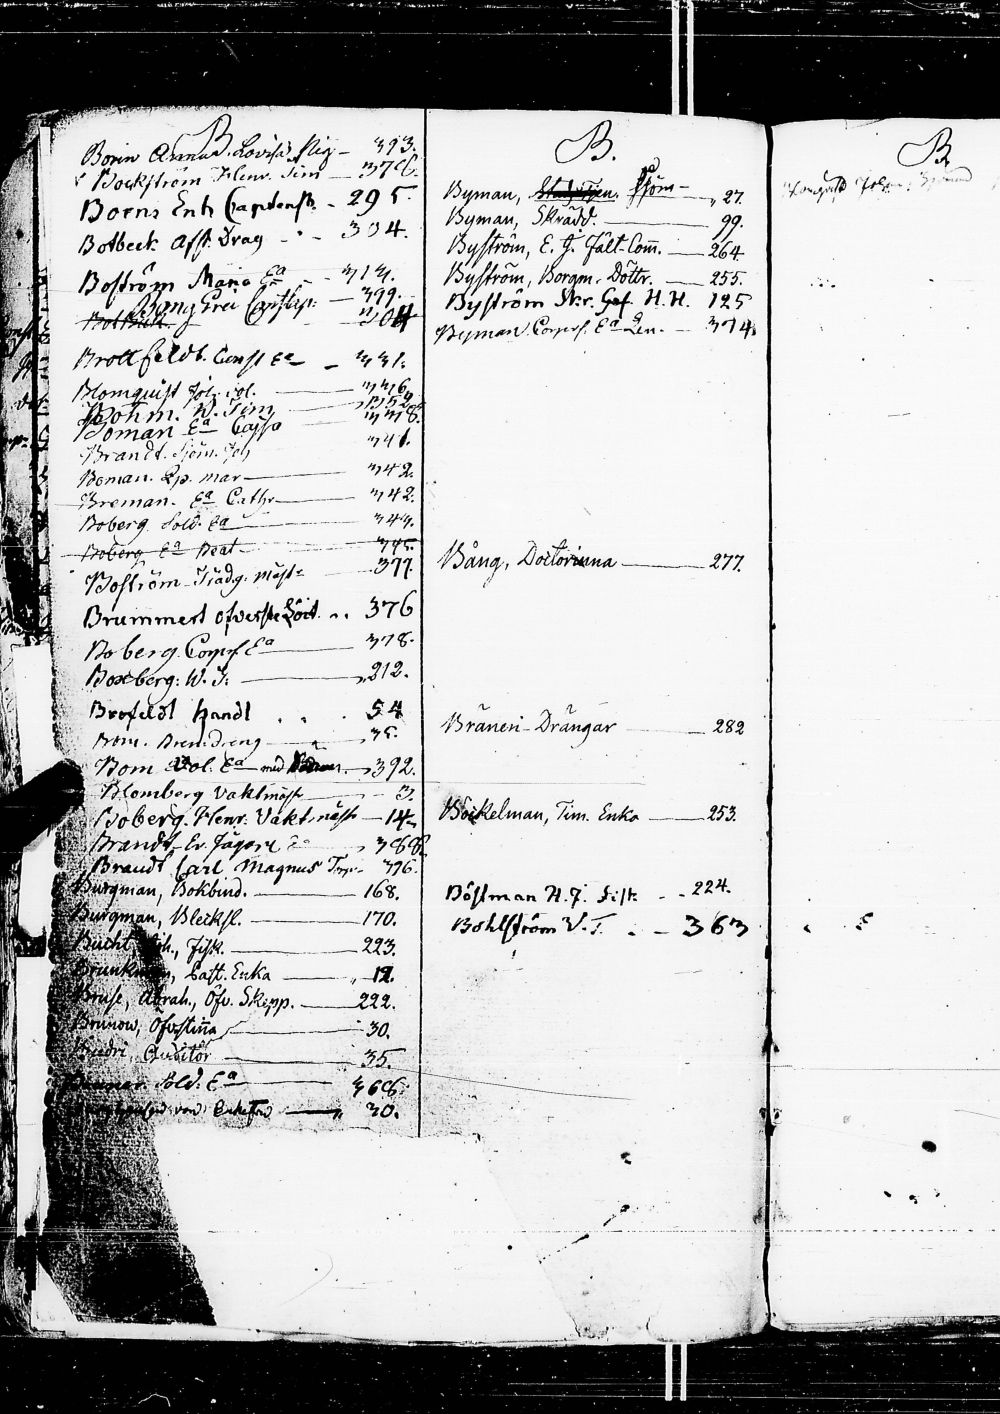 B
Borin Anna Lovisa Pig — 393.
Bockström Henr. Tim — 378.
Boens Enk — 295.
Botbeck Afsk. Drag — 304.
Boström Maria Ea — 313.
399.
Botbeck 304
Brottfeldt. Const Ea — 331.
Blomquist — 336.
Bohm. W. Tim
Boman Ea Cajsa — 338.
Brandt. Sjöm. Joh 341.
Boman. Lp. mar — 342.
Breman. Ea Cathr — 342.
Boberg Sold. Ea — 343.
Boberg Ea Beat — 345.
Boström Trädg. mäst — 377.
Brummert öfverste Löit. 376
Boberg. Corprl Ea — 378.
Boxberg: W. T: — 212.
Brofeldt Handl 54
Bom. — 35.
Bom Vol. Ea med — 392.
Blomberg Vaktmäst — 3.
Boberg. Henr. Vaktmäst — 14
Brandt Er. Jägare Ea 388.
Brandt Carl Magnus 396.
Burgman, Bokbind. — 168.
Burgman, Blecksl. — 170.
Bucht Joh., Fisk. — 223.
Brunkman, Catt. Enka — 12.
Bruse, Abrah., Öfv. Skepp. — 222.
Brunow, Öfvstinna — 30.
Budri, Auditör — 35.
Sold. Ea — 368.
— 30.
B.
Byman, Sjöm — 27.
Byman, Skrädd. — 99.
Byström, E. G. Fält-Com. — 264
Byström, Borgm. Döttr. — 255.
Byström Skr. Gef. H. H. 125
Byman Corprl. Ea Len. — 374.
Bång, Doctorinna — 277.
Bräneri-Drängar — 282
Böckelman, Tim. Enka — 253.
Böstman H. J. Fisk. - - 224.
Bohlström V. T. - - 363
B.